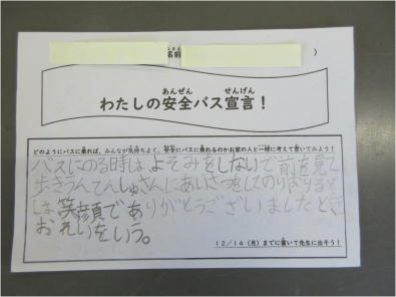 名前
)
あんぜん せんげん
わたしの安全バス宣言！
どのようにバスに乗れば、みんなが気持ちよく、安全にバスに乗れるのかお家の人と一緒に考えて書いてみよう！
バスにのる時は、よそみをしないで前を見て
歩きうんてんしゅさんにあいさつをしてのりおりると
きは笑顔でありがとうございましたと
おれいをいう。
12/14（月）までに書いて先生に出そう！